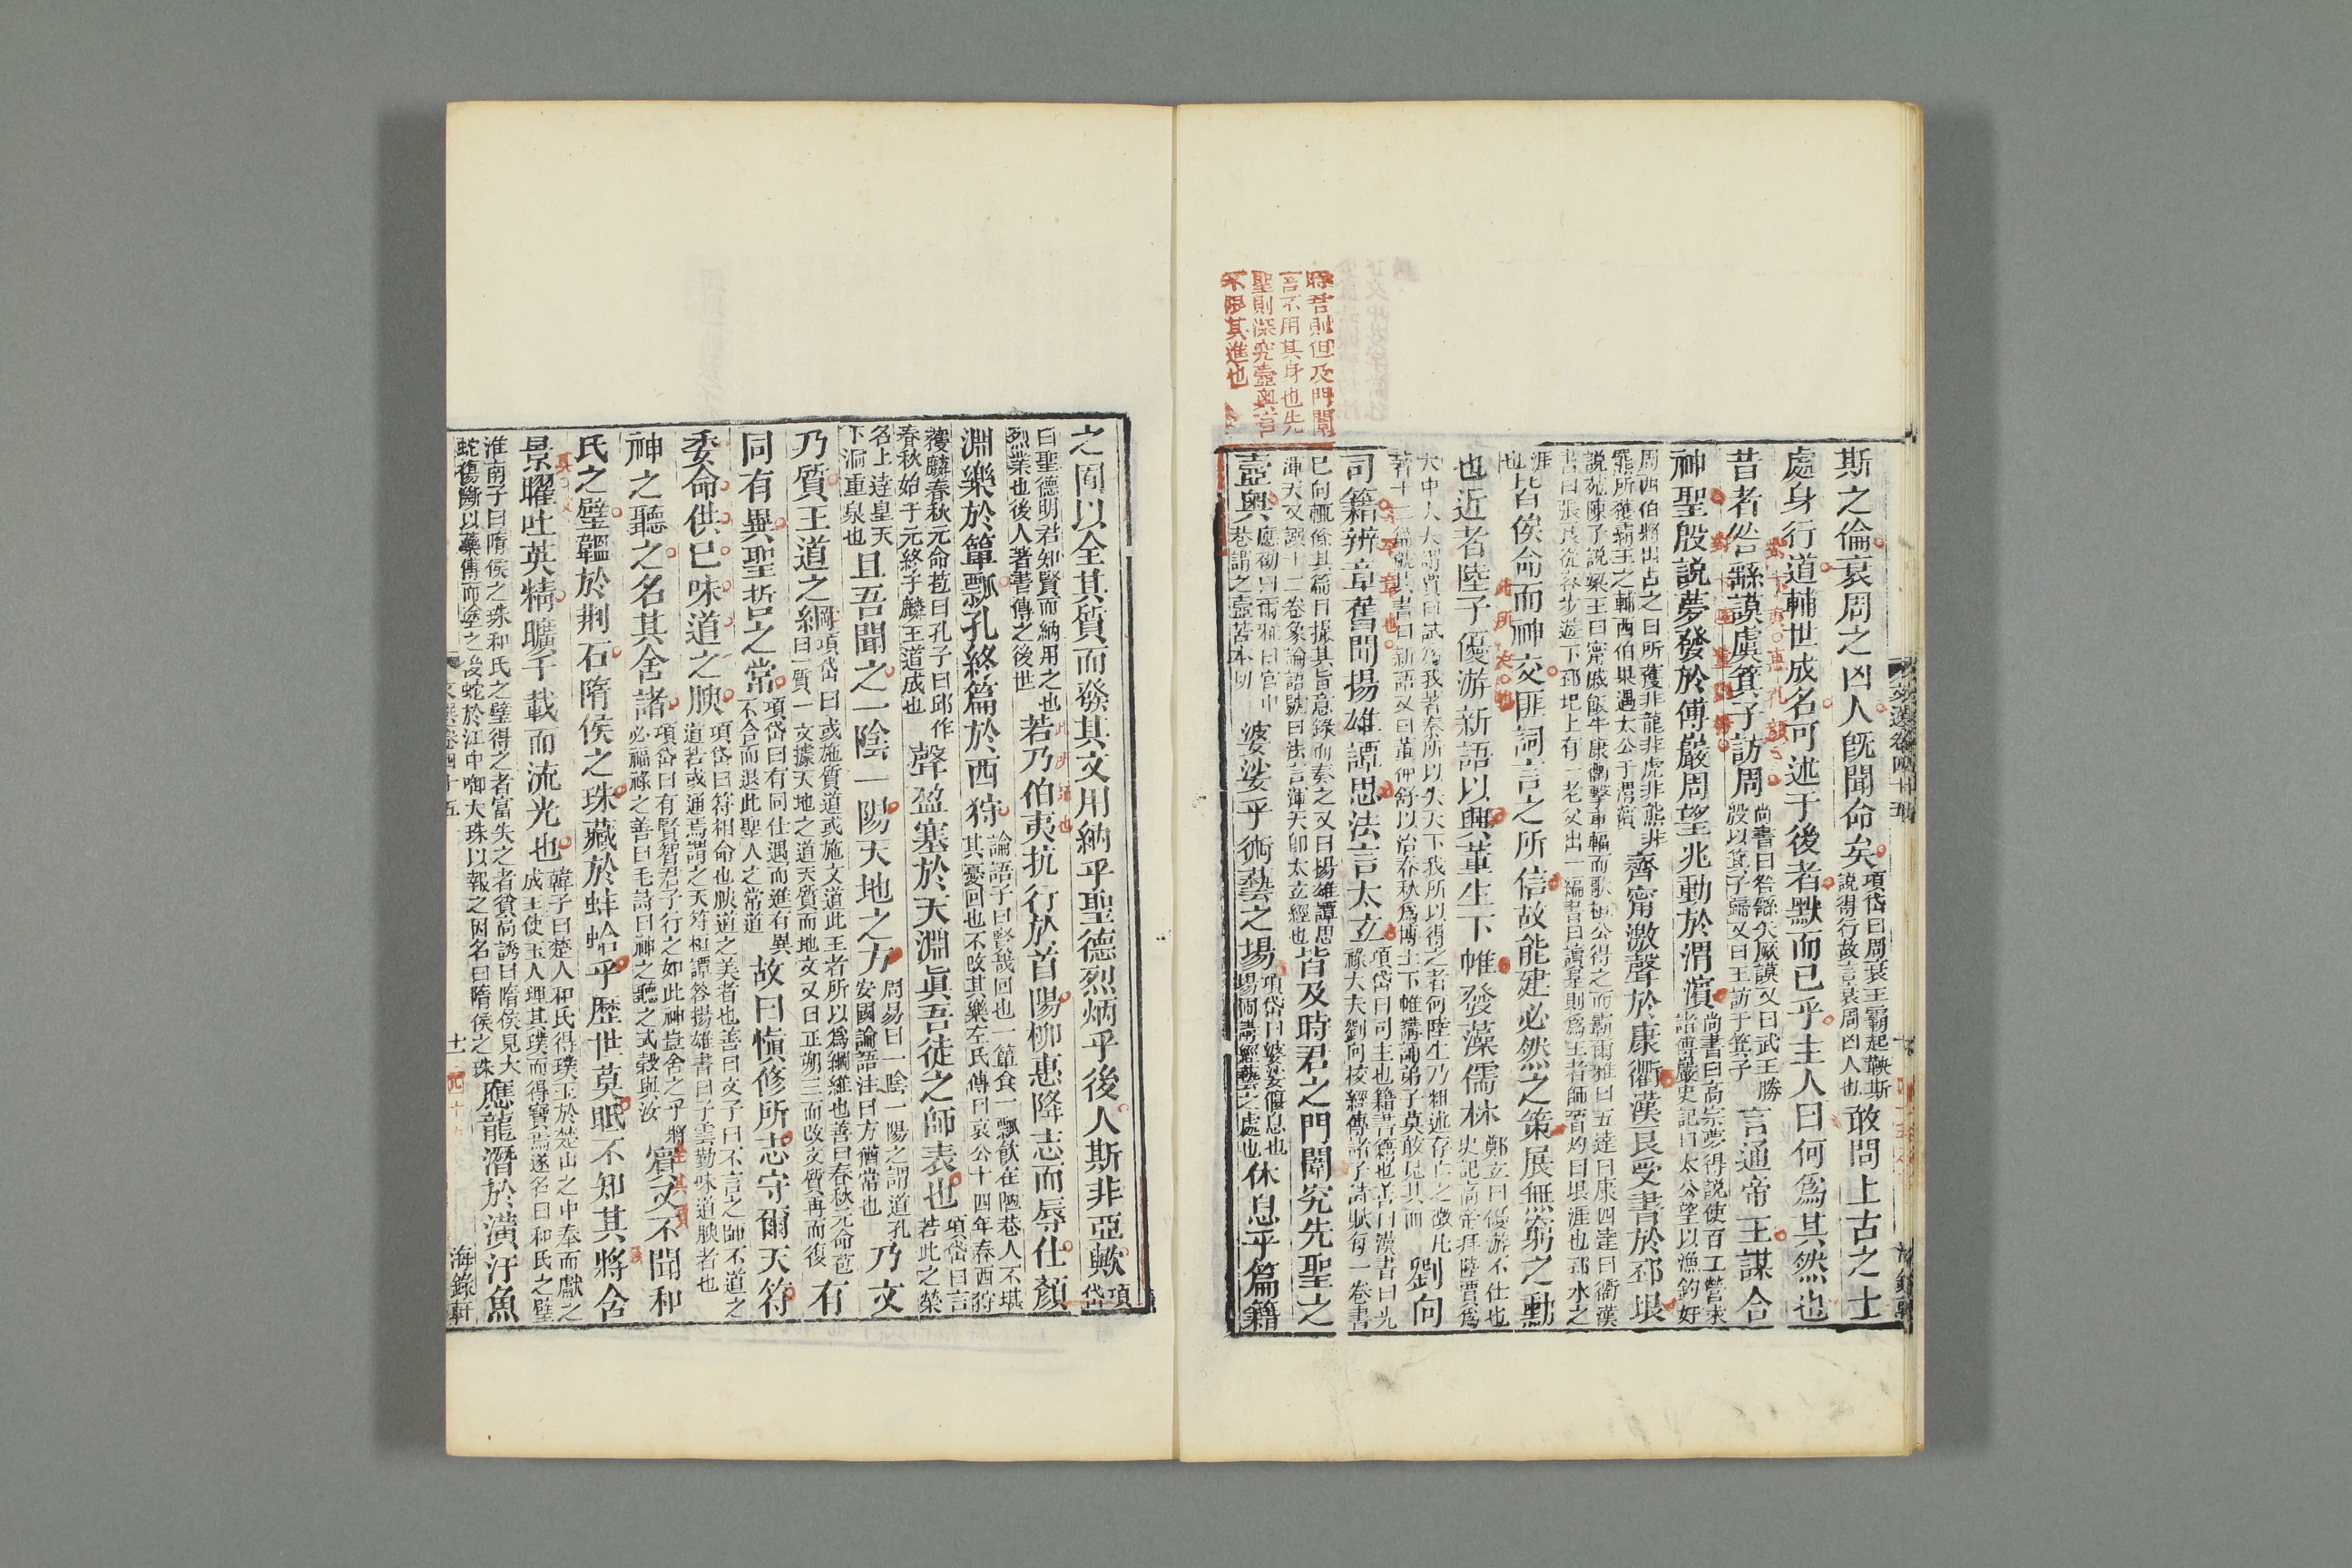 時君則但及門闈
言不用其身也先
聖則深究壼奧言
不限其進也
斯之倫衰周之凶人旣聞命矣項岱曰周衰王霸起鞅斯
說得行故言衰周凶人也敢問上古之士
處身行道輔世成名可述于後者默而已乎主人曰何爲其然也
昔者咎繇謨虞箕子訪周尚書曰咎繇矢厥謨又曰武王勝
殷以箕子歸又曰王訪于箕子言通帝王謀合
神聖殷說夢發於傅巖周望兆動於渭濱尚書曰高宗夢得說使百工營求
諸傅巖史記曰太公望以漁釣奸
周西伯將出占之曰所獲非龍非虎非熊非
羆所獲霸王之輔西伯果遇太公于渭濱齊甯激聲於康衢漢良受書於邳垠
說苑陳子說梁王曰甯戚飯牛康衢擊車輻而歌桓公得之而霸爾雅曰五達曰康四達曰衢漢
書曰張良從容步遊下邳圯上有一老父出一編書曰讀是則爲王者師晉灼曰垠涯也邳水之
涯
也皆俟命而神交匪詞言之所信故能建必然之策展無窮之勳
也近者陸子優游新語以興董生下帷發藻儒林鄭玄曰優游不仕也
史記高帝拜陸賈爲
太中大夫謂賈曰試爲我著秦所以失天下我所以得之者何陸生乃粗述存亡之徵凡
著十二篇號其書曰新語又曰董仲舒以治春秋爲博士下帷講誦弟子莫敢見其面劉向
司籍辨章舊聞揚雄譚思法言太玄項岱曰司主也籍書籍也善曰漢書曰光
祿大夫劉向校經傳諸子詩賦每一卷書
已向輒條其篇目撮其旨意錄而奏之又曰揚雄譚思
渾天又譔十二卷象論語號曰法言渾天卽太玄經也皆及時君之門闈究先聖之
壼奧應劭曰爾雅曰宮中
巷謂之壼苦本切婆娑乎術藝之場項岱曰婆娑偃息也
場圃講經藝之處也休息乎篇籍
之囿以全其質而發其文用納乎聖德烈炳乎後人斯非亞歟項
岱
曰聖德明君知賢而納用之也
烈業也後人著書傳之後世若乃伯夷抗行於首陽柳惠降志而辱仕顏
淵樂於簞瓢孔終篇於西狩論語子曰賢哉回也一簞食一瓢飮在陋巷人不堪
其憂回也不改其樂左氏傳曰哀公十四年春西狩
獲麟春秋元命苞曰孔子曰邱作
春秋始于元終于麟王道成也聲盈塞於天淵眞吾徒之師表也項岱曰言
若此之榮
名上達皇天
下洞重泉也且吾聞之一陰一陽天地之方周易曰一陰一陽之謂道孔
安國論語注曰方猶常也乃文
乃質王道之綱項岱曰或施質道或施文道此王者所以爲綱維也善曰春秋元命苞
曰一質一文據天地之道天質而地文又曰正朔三而改文質再而復有
同有異聖哲之常項岱曰有同仕遇而進有異
不合而退此聖人之常道故曰愼修所志守爾天符
委命供已味道之腴項岱曰符相命也腴道之美者也善曰文子曰不言之師不道之
道若或通焉謂之天符桓譚答揚雄書曰子雲勤味道腴者也
神之聽之名其舍諸項岱曰有賢智君子行之如此神豈舍之乎將
必福祿之善曰毛詩曰神之聽之式穀與汝賓又不聞和
氏之璧韞於荆石隋侯之珠藏於蚌蛤乎歷世莫眡不知其將含
景曜吐英精曠千載而流光也韓子曰楚人和氏得璞玉於楚山之中奉而獻之
成王使玉人理其璞而得寶焉遂名曰和氏之璧
淮南子曰隋侯之珠和氏之璧得之者富失之者貧高誘曰隋侯見大
蛇傷斷以藥傅而塗之後蛇於江中啣大珠以報之因名曰隋侯之珠應龍潛於潢汙魚
文選卷四十五
十一
海錄軒